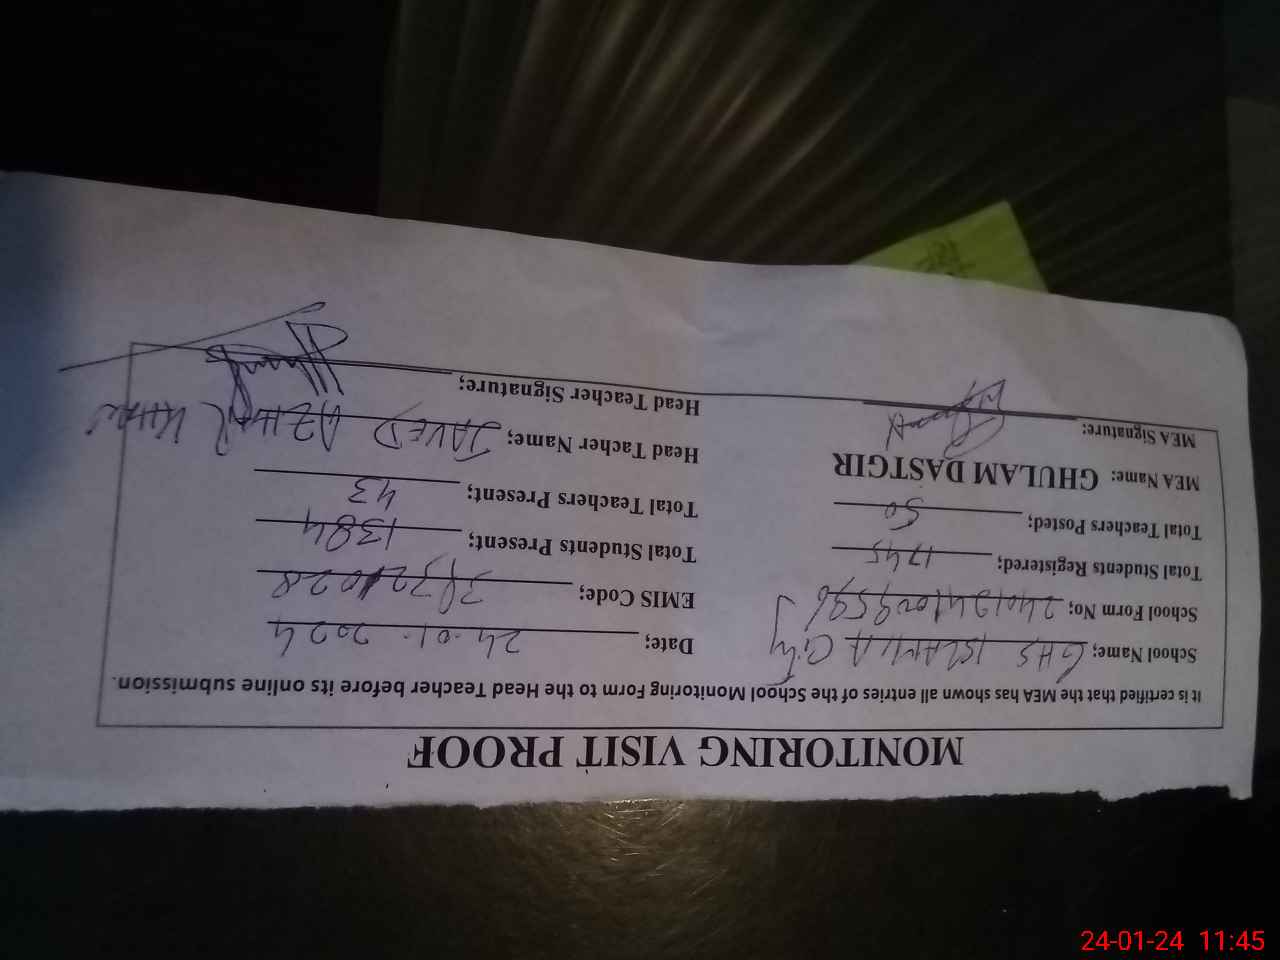 MONITORING VISIT PROOF
It is certified that the MEA has shown all entries of the School Monitoring Form to the Head Teacher before its online submission.
School Name; GHS ISLAMIA City Date; 24.01.2024
School Form No; EMIS Code;
Total Students Registered; 1745 Total Students Present; 1384
Total Teachers Posted; 50 Total Teachers Present; 43
MEA Name: GHULAM DASTGIR Head Tacher Name; JAVED AZHAR KHAN
MEA Signature: Head Teacher Signature;
24-01-24 11:45